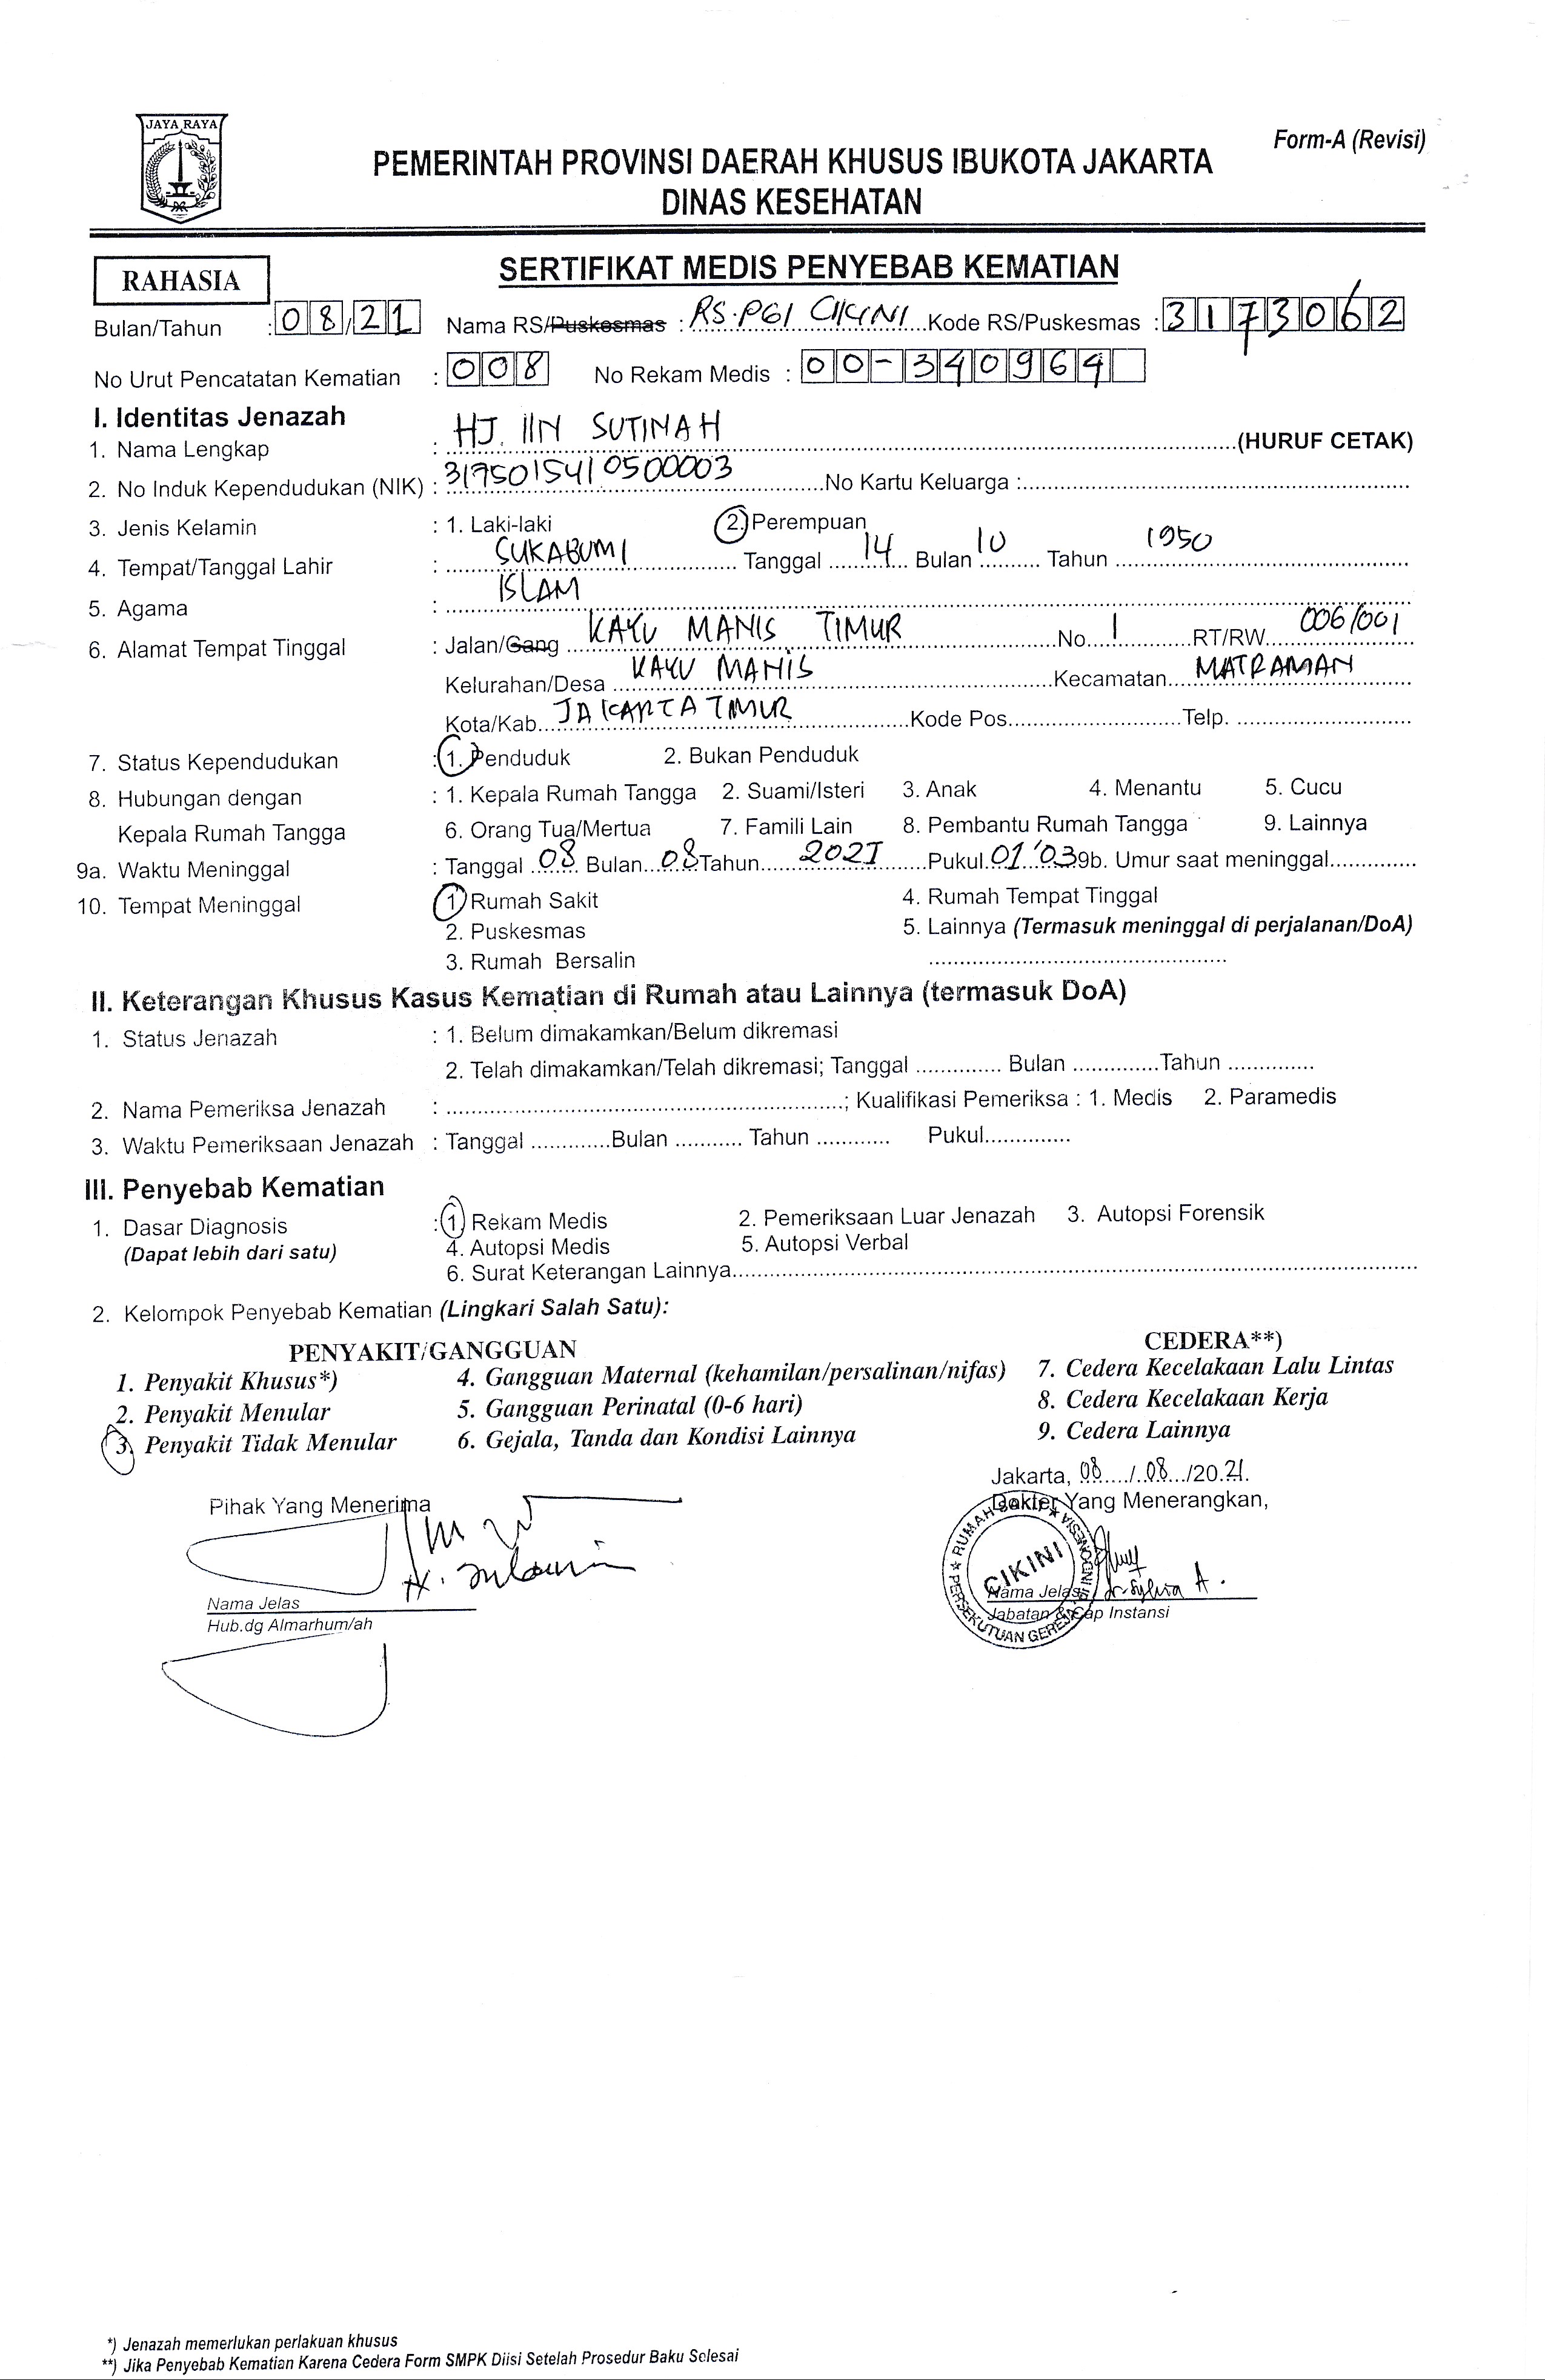 JAYA RAYA
Form-A (Revisi)
PEMERINTAH PROVINSI DAERAH KHUSUS IBUKOTA JAKARTA
DINAS KESEHATAN
RAHASIA
SERTIFIKAT MEDIS PENYEBAB KEMATIAN
Bulan/Tahun : 08/21 Nama RS/Puskesmas : RS.PGI CIKINI Kode RS/Puskesmas : 3173062
No Urut Pencatatan Kematian : 008 No Rekam Medis : 00-340964
I. Identitas Jenazah
1. Nama Lengkap : HJ. IIN SUTINAH (HURUF CETAK)
2. No Induk Kependudukan (NIK) : 3175015410500003 No Kartu Keluarga :
3. Jenis Kelamin : 1. Laki-laki 2. Perempuan
4. Tempat/Tanggal Lahir : SUKABUMI Tanggal 14 Bulan 10 Tahun 1950
5. Agama : ISLAM
6. Alamat Tempat Tinggal : Jalan/Gang KAYU MANIS TIMUR No. 1 RT/RW 006/001
Kelurahan/Desa KAYU MANIS Kecamatan MATRAMAN
Kota/Kab. JAKARTA TIMUR Kode Pos Telp.
7. Status Kependudukan : 1. Penduduk 2. Bukan Penduduk
8. Hubungan dengan : 1. Kepala Rumah Tangga 2. Suami/Isteri 3. Anak 4. Menantu 5. Cucu
Kepala Rumah Tangga 6. Orang Tua/Mertua 7. Famili Lain 8. Pembantu Rumah Tangga 9. Lainnya
9a. Waktu Meninggal : Tanggal 08 Bulan 08 Tahun 2021 Pukul 01'03 9b. Umur saat meninggal
10. Tempat Meninggal 1 Rumah Sakit 4. Rumah Tempat Tinggal
2. Puskesmas 5. Lainnya (Termasuk meninggal di perjalanan/DoA)
3. Rumah Bersalin
II. Keterangan Khusus Kasus Kematian di Rumah atau Lainnya (termasuk DoA)
1. Status Jenazah : 1. Belum dimakamkan/Belum dikremasi
2. Telah dimakamkan/Telah dikremasi; Tanggal Bulan Tahun
2. Nama Pemeriksa Jenazah : ; Kualifikasi Pemeriksa : 1. Medis 2. Paramedis
3. Waktu Pemeriksaan Jenazah : Tanggal Bulan Tahun Pukul
III. Penyebab Kematian
1. Dasar Diagnosis : 1 Rekam Medis 2. Pemeriksaan Luar Jenazah 3. Autopsi Forensik
(Dapat lebih dari satu) 4. Autopsi Medis 5. Autopsi Verbal
6. Surat Keterangan Lainnya
2. Kelompok Penyebab Kematian (Lingkari Salah Satu):
PENYAKIT/GANGGUAN CEDERA**)
1. Penyakit Khusus*) 4. Gangguan Maternal (kehamilan/persalinan/nifas) 7. Cedera Kecelakaan Lalu Lintas
2. Penyakit Menular 5. Gangguan Perinatal (0-6 hari) 8. Cedera Kecelakaan Kerja
3. Penyakit Tidak Menular 6. Gejala, Tanda dan Kondisi Lainnya 9. Cedera Lainnya
Jakarta, 08/08/2021.
Pihak Yang Menerima Dokter Yang Menerangkan,
RUMAH SAKIT CIKINI PERSEKUTUAN GEREJA DI INDONESIA
Nama Jelas dr. Sylvia A.
Jabatan & Cap Instansi
Nama Jelas
Hub.dg Almarhum/ah
*) Jenazah memerlukan perlakuan khusus
**) Jika Penyebab Kematian Karena Cedera Form SMPK Diisi Setelah Prosedur Baku Selesai